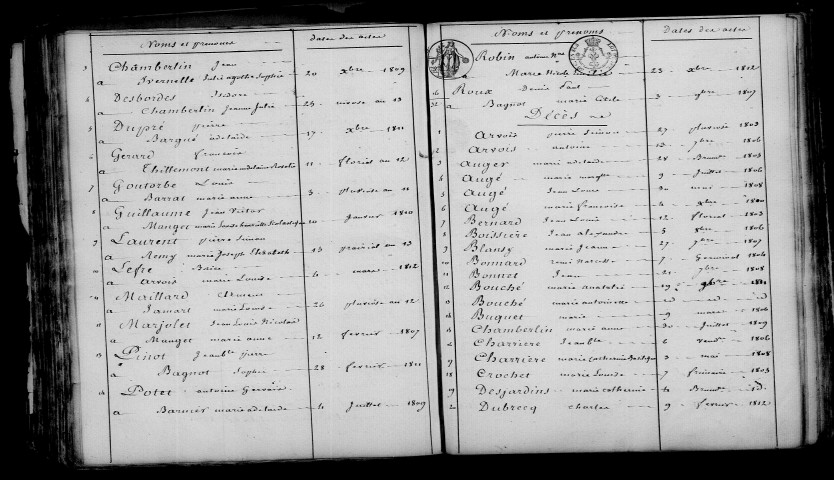 Noms et prenoms Dates des actes
3 Chamberlin Jean
a Svernelle Julie agathe Sophie 20 xbre 1809
4 Desbordes Isidore
a Chamberlin Jeanne Julie 25 messe an 13
5 Dupré pierre
a Barqué adelaide 17 xbre 1811
6 Gerard francois
a Thillemont marie adelaide Rosalie 11 floreal an 12
7 Goutorbe Louis
a Barrat marie anne 3 pluviose an 11
8 Guillaume Jean Victor
a Mauget marie Louise henriette Scholastique 20 Janvier 1810
9 Laurent pierre Simon
a Remy marie Joseph Elizabeth 13 prairial an 13
10 Lefre
a Arvois marie Louise 6 mars 1812
11 Maillard Clement
a Jamart marie Louise 26 pluviose an 12
Marjolet Jean Louis Nicolas
a Mauget marie anne 12 fevrier 1807
13 Pinot Jean Bte pierre
a Bagnot Sophie 28 fevrier 1811
14 Potet antoine Gervais
a Barnier marie adelaide 4 Juillet 1809
Noms et prenoms Dates des actes
Robin antoine
a Marie Nicole 23 xbre 1812
16 Roux Denis Paul
a Bagnot marie Cecile 3 gbre 1807
Décès
1 Arvois pierre Simon 27 pluviose 1803
2 Arvois antoine 13 7bre 1806
3 Auger marie adelaide 28 Brum 1803
4 Augé marie 9 Juillet 1806
5 Augé Jean Louis mai 1808
6 Augé marie francoise 4 xbre 1810
7 Bernard Jean Louis 12 floreal 1803
8 Boissière Jean alexandre 5 xbre 1806
9 Blansy marie Jeanne 27 7bre 1807
10 Bonnard remi narcisse 7 Germinal 1806
11 Bonnet Jean 21 7bre 1808
12 Bouché marie 19 gbre 1811
13 Bouché marie antoinette id id id
14 Buguet marie 9 mars 1806
15 Chamberlin marie anne 30 Juillet 1809
16 Charriere Jean Bte 6 vend 1806
17 Charriere marie Catherine 3 mai 1808
18 Crochet marie Louise 7 frimaire 1803
19 Desjardins marie Catherine 4 Brum id
20 Dubrecq charles 9 fevrier 1812